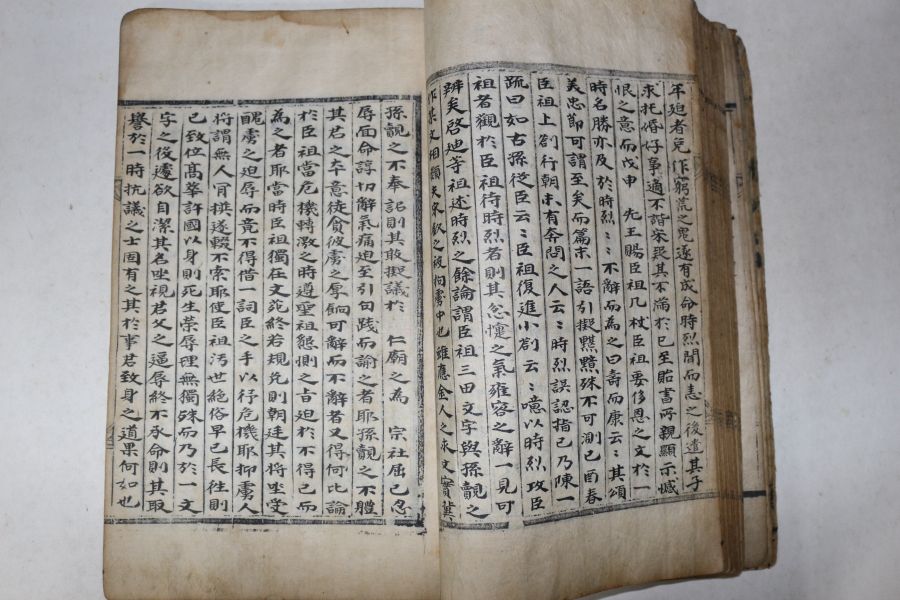 年迫者兒 作窮荒之鬼遂有成命時烈聞而恚之後遣其子
求托婚好事適不諧宋疑其不端於己至貽書所親顯示憾
恨之意而戊申 先王賜臣祖几杖臣祖要侈恩之文於一
時名勝亦及於時烈〻〻不辭而爲之曰壽而康云〻其頌
美忠節可謂至矣而篇末一語引擬黯黮殊不可測己酉春
臣祖上劄行朝未有奔問之人云〻時烈誤認指己乃陳一
疏曰如古孫從臣云〻臣祖復進小劄云〻噫以時烈攻臣
祖者觀於臣祖待時烈者則其忿懥之氣雍容之辭一見可
辨矣啓迪等祖述時烈之餘論謂臣祖三田文字與孫覿之
作某文相類夫宋欽之被拘虜中也雖應金人之求文實冀
孫覿之不奉詔則其敢擬議於 仁廟之爲 宗社屈己忍
辱面命諄切辭氣痛迫至引句踐而諭之者耶孫覿之不體
其君之本意徒貪彼虜之厚餉可辭而不辭者又得何比論
於臣祖當危機轉激之時遵聖祖懇惻之旨迫於不得已而
爲之者耶當時臣祖獨在文苑終若規免則朝廷其將坐受
醜虜之迫辱而竟不得借一詞臣之手以行危機耶抑虜人
將謂無人肯撰遂輟不索耶使臣祖汚世絶俗早已長往則
已致位高華許國以身則死生榮辱理無獨殊而乃於一文
字之後遽欲自潔其色坐視君父之逼辱終不承命則其取
譽於一時抗議之士固有之其於事君致身之道果何如也